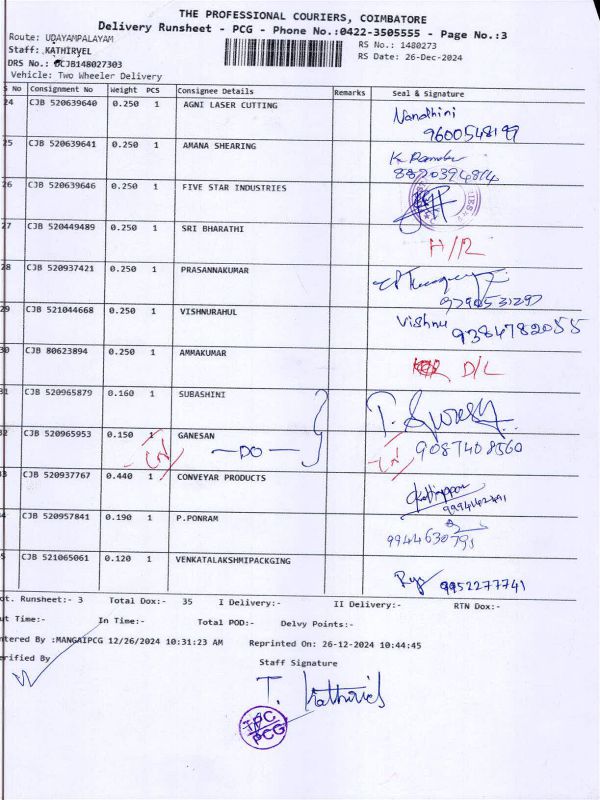 THE PROFESSIONAL COURIERS, COIMBATORE
Delivery Runsheet - PCG - Phone No.:0422-3505555 - Page No.:3
Route: UDAYAMPALAYAM
RS No.: 1480273
Staff: KATHIRVEL
RS Date: 26-Dec-2024
DRS No.: CJB148027303
Vehicle: Two Wheeler Delivery
S No Consignment No Weight PCS Consignee Details Remarks Seal & Signature
24 CJB 520639640 0.250 1 AGNI LASER CUTTING Nandhini
9600548199
25 CJB 520639641 0.250 1 AMANA SHEARING
8820394814
26 CJB 520639646 0.250 1 FIVE STAR INDUSTRIES
27 CJB 520449489 0.250 1 SRI BHARATHI H/R
28 CJB 520937421 0.250 1 PRASANNAKUMAR
9790531297
29 CJB 521044668 0.250 1 VISHNURAHUL Vishnu 9384782055
30 CJB 80623894 0.250 1 AMMAKUMAR D/L
31 CJB 520965879 0.160 1 SUBASHINI
32 CJB 520965953 0.150 1 GANESAN
—DO— 9087408560
33 CJB 520937767 0.440 1 CONVEYAR PRODUCTS
34 CJB 520957841 0.190 1 P.PONRAM
35 CJB 521065061 0.120 1 VENKATALAKSHMIPACKGING
9952277741
ot. Runsheet:- 3 Total Dox:- 35 I Delivery:- II Delivery:- RTN Dox:-
ut Time:- In Time:- Total POD:- Delvy Points:-
ntered By :MANGAIPCG 12/26/2024 10:31:23 AM Reprinted On: 26-12-2024 10:44:45
erified By
Staff Signature
T. Kathirvel
TPC
PCG